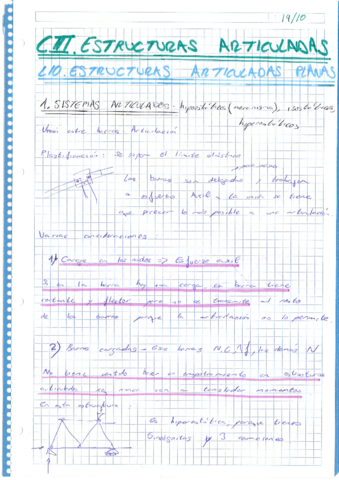 19/10
CIII. ESTRUCTURAS ARTICULADAS
L10. ESTRUCTURAS ARTICULADAS PLANAS
1. SISTEMAS ARTICULADOS: hipoestáticos (mecanismo), isostáticos,
hiperestáticos
Unión entre barras Articulación
Plastificación: Se supera el límite elástico
Las barras son delgadas y trabajan
a esfuerzo Axil - La unión se tiene
que parecer lo más posible a una articulación.
Varias consideraciones:
1) Cargas en los nudos => Esfuerzo axil
Si en la barra hay una carga, la barra tiene
cortante y flector pero no se transmite al resto
de las barras porque la articulación no lo permite
2) Barras cargadas - Esas barras N, C, Mf, los demás N
No tiene sentido hacer un empotramiento en estructuras
articuladas ya que van a trasladar momentos
En esta estructura:
Es hiperestática, porque tienes
5 incógnitas y 3 ecuaciones